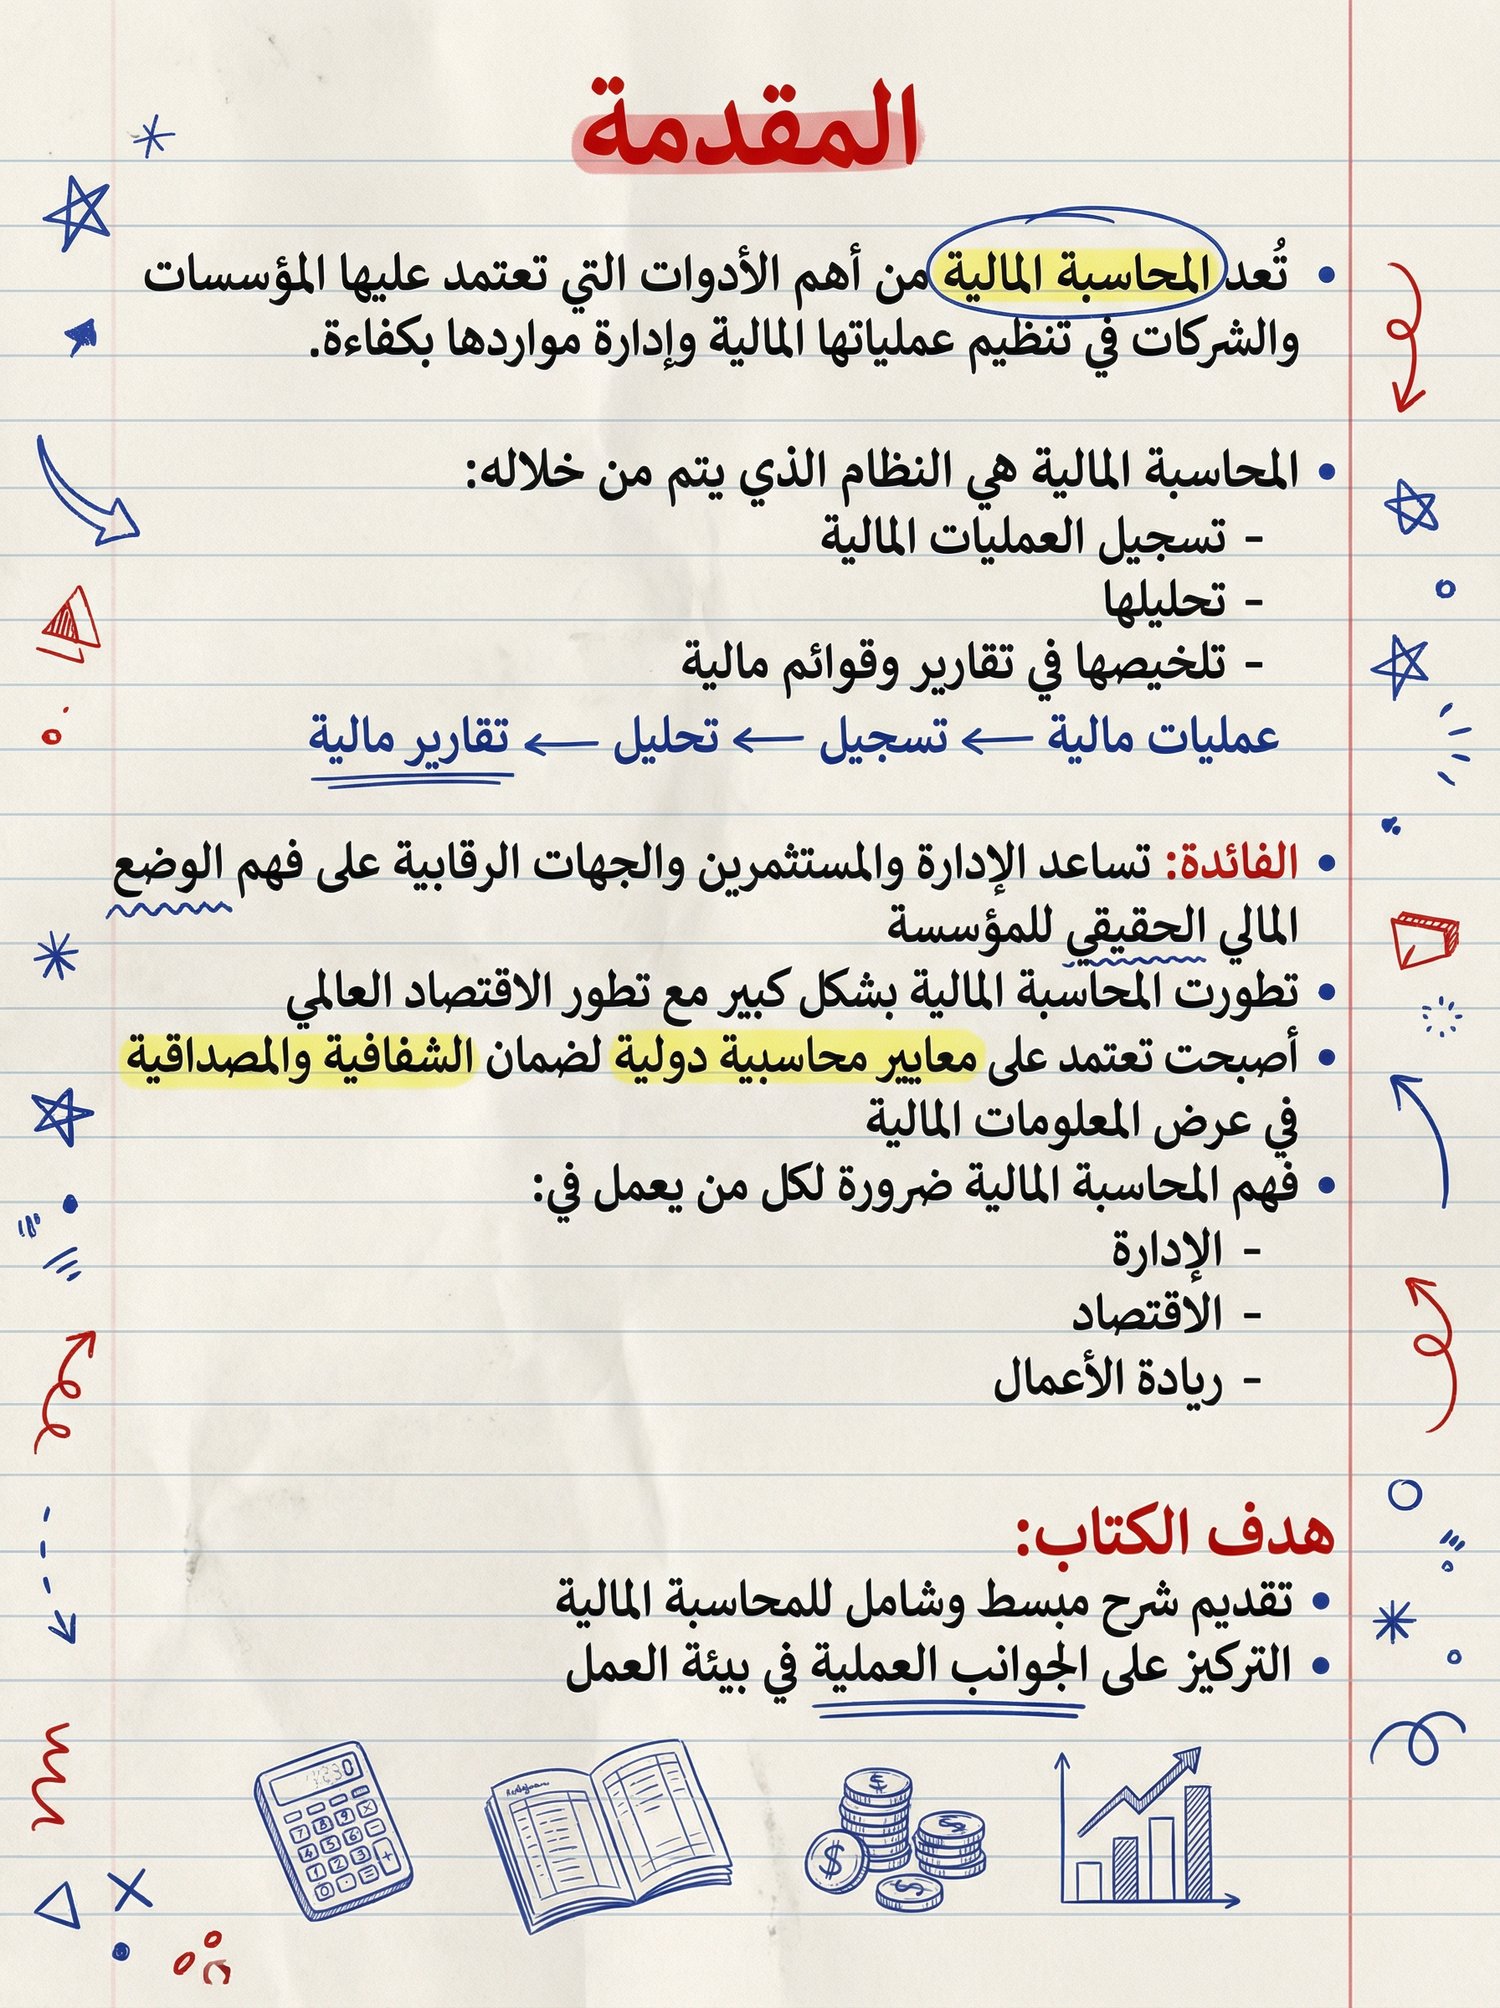 المقدمة
• تُعد المحاسبة المالية من أهم الأدوات التي تعتمد عليها المؤسسات
والشركات في تنظيم عملياتها المالية وإدارة مواردها بكفاءة.
• المحاسبة المالية هي النظام الذي يتم من خلاله:
- تسجيل العمليات المالية
- تحليلها
- تلخيصها في تقارير وقوائم مالية
عمليات مالية ← تسجيل ← تحليل ← تقارير مالية
• الفائدة: تساعد الإدارة والمستثمرين والجهات الرقابية على فهم الوضع
المالي الحقيقي للمؤسسة
• تطورت المحاسبة المالية بشكل كبير مع تطور الاقتصاد العالمي
• أصبحت تعتمد على معايير محاسبية دولية لضمان الشفافية والمصداقية
في عرض المعلومات المالية
• فهم المحاسبة المالية ضرورة لكل من يعمل في:
- الإدارة
- الاقتصاد
- ريادة الأعمال
هدف الكتاب:
• تقديم شرح مبسط وشامل للمحاسبة المالية
• التركيز على الجوانب العملية في بيئة العمل